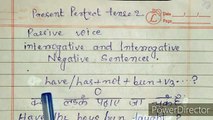 Present Perfect tense 2
Passive voice
interrogative and Interrogative
Negative Sentences.
have/has+not+bun+v3---?
O
क्या लड़के पढ़ाए जा चुके हैं
Have the been
PowerDirector